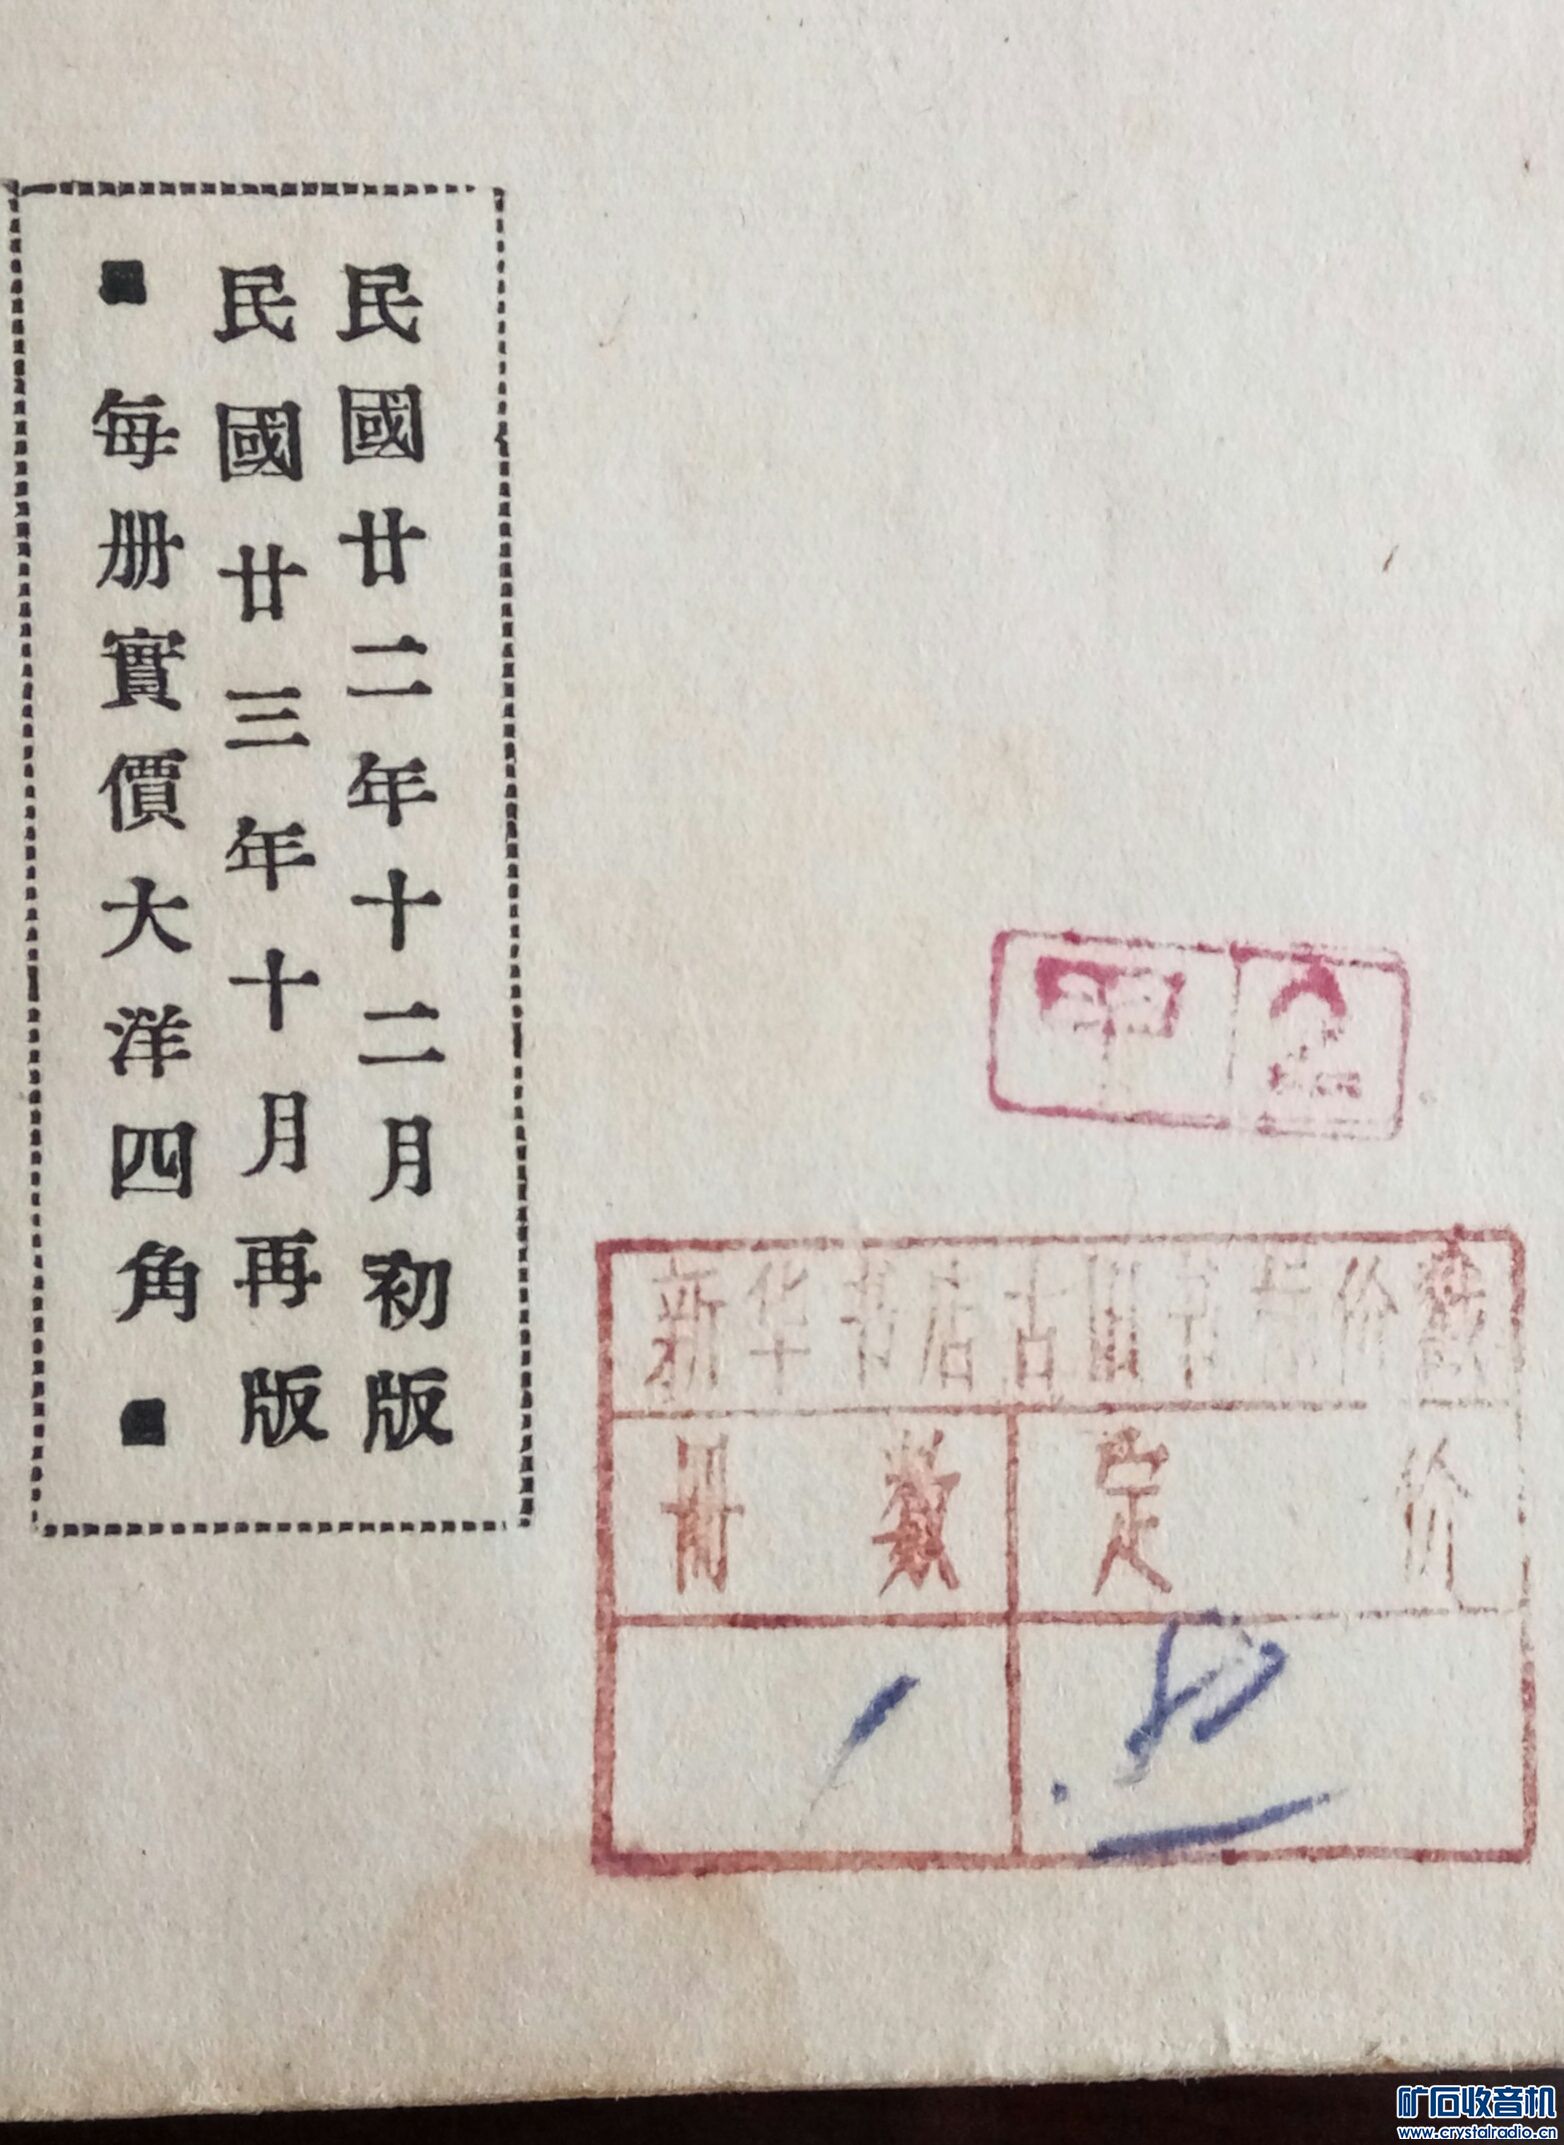 民國廿二年十二月初版
民國廿三年十月再版
■每册實價大洋四角■
甲 2
新华书店古旧书标价戳
册数 定价
1
矿石收音机
www.crystalradio.cn